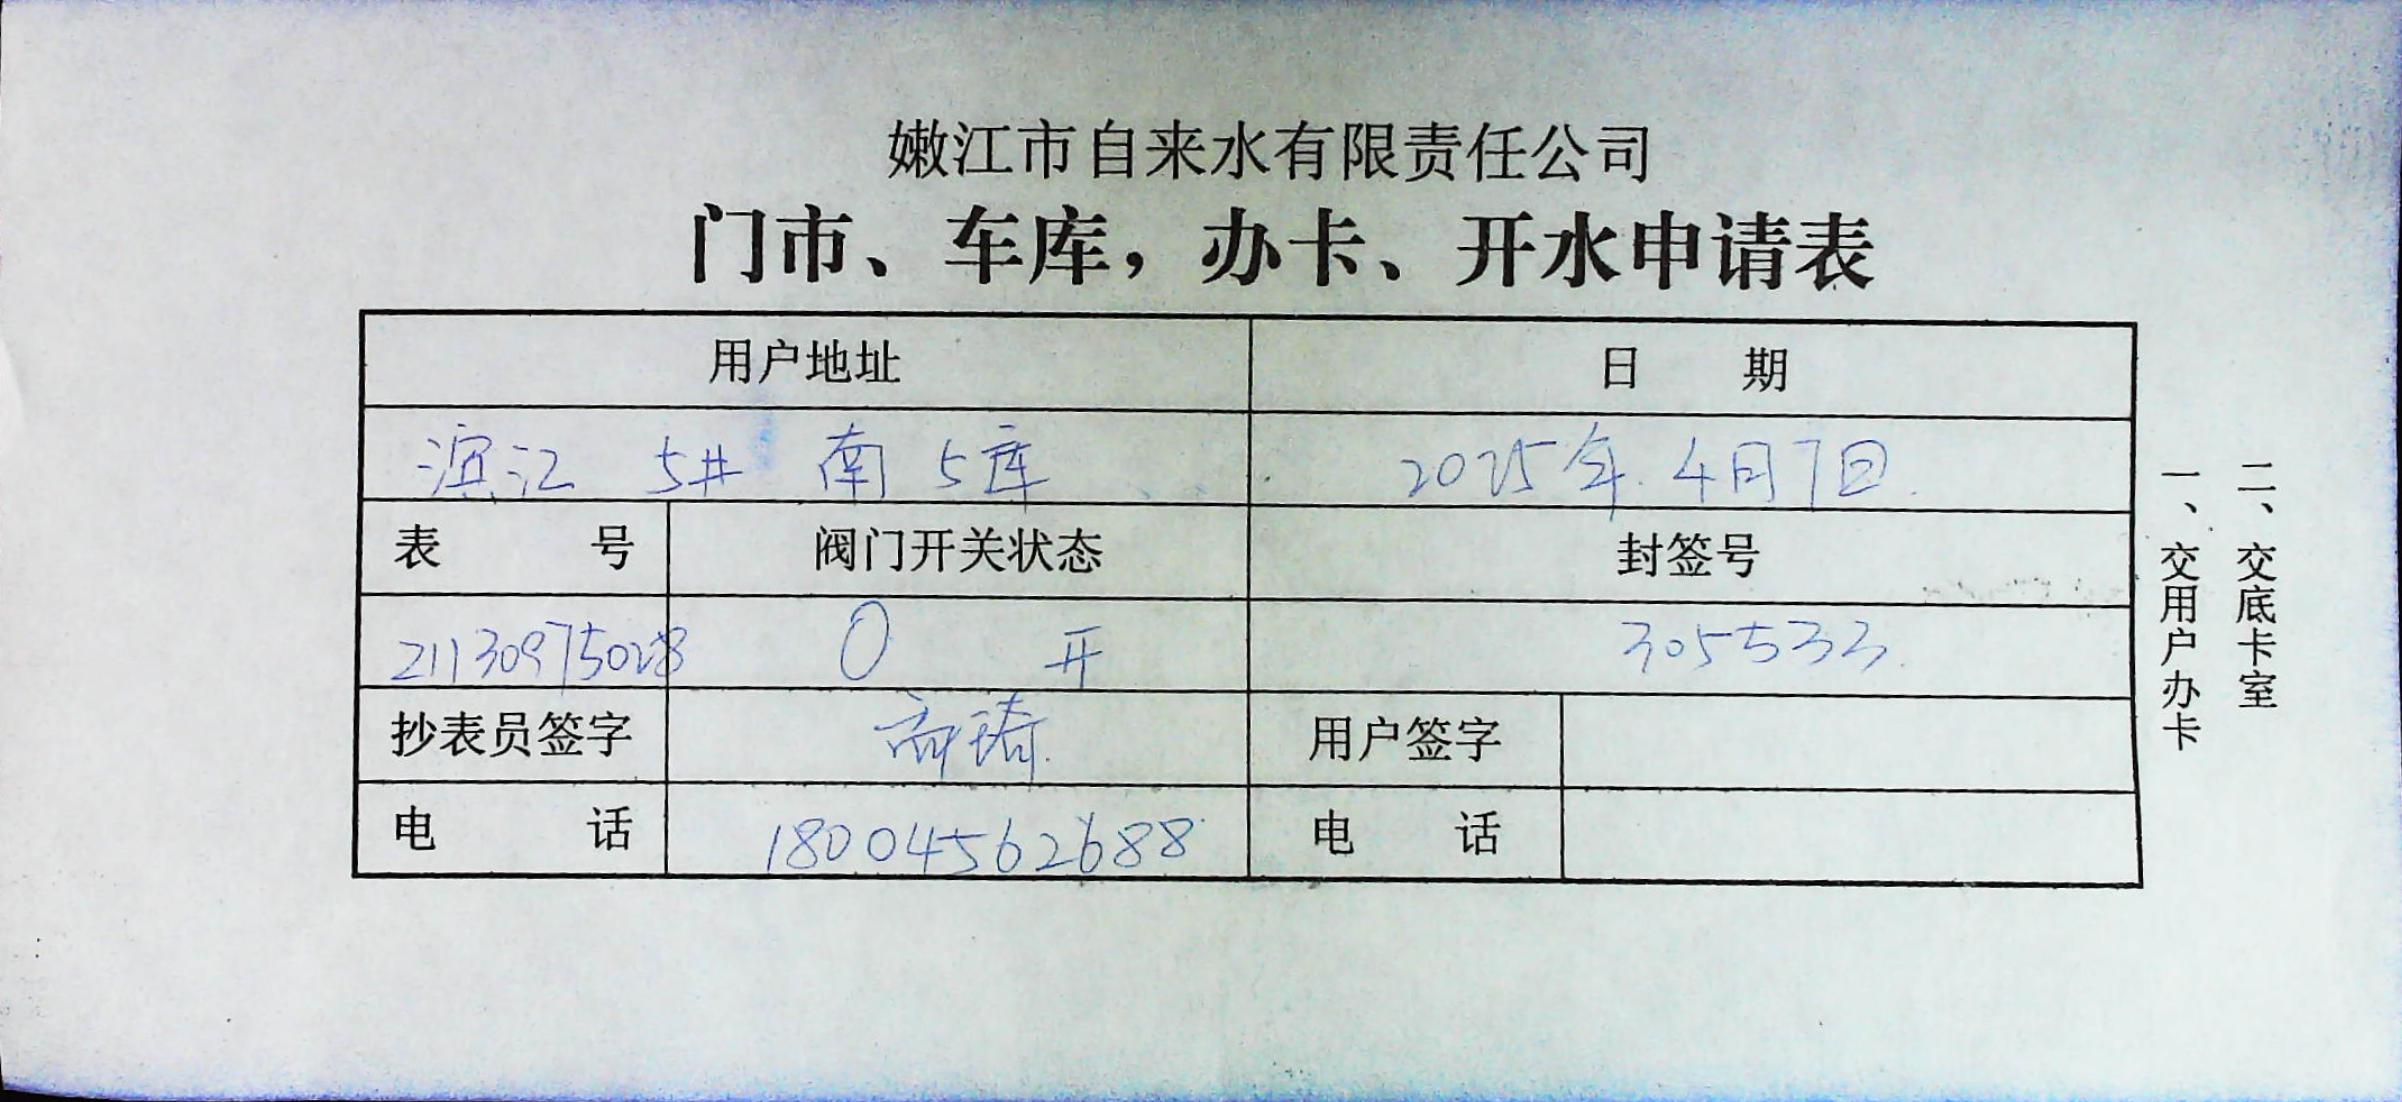 嫩江市自来水有限责任公司
门市、车库，办卡、开水申请表
用户地址 日 期
滨江 5# 南 5库 2025年 4月7日
表 号 阀门开关状态 封签号
21130975028 0 开 305533
抄表员签字 用户签字
电 话 18004562688 电 话
一、交用户办卡
二、交底卡室